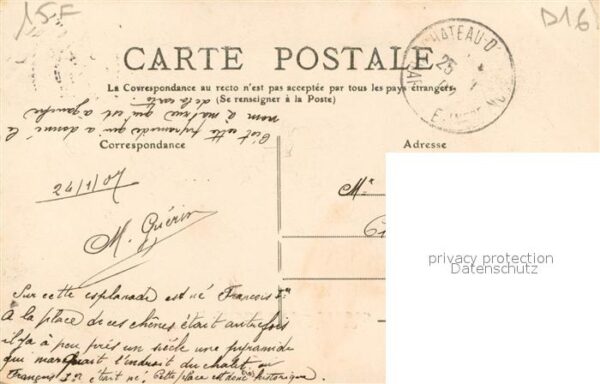 15F
D16
CARTE POSTALE
La Correspondance au recto n'est pas acceptée par tous les pays étrangers
(Se renseigner à la Poste)
C'est cette pyramide qui a donné le
nom à ma rue qui est à gauche
de la carte.
Correspondance
Adresse
CHATEAU-D
25
24/1/07
M. Guérin
Mr
privacy protection
Datenschutz
Sur cette esplanade est né François Ier
A la place de ces chênes était autrefois
il y a à peu près un siècle une pyramide
qui marquait l'endroit du chalet où
François Ier était né. Cette place est donc historique.